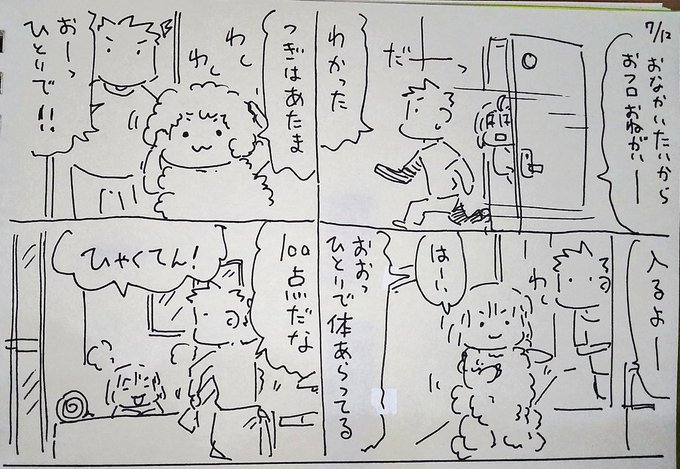 7/12
おなかいたいから
おフロおねがいー
だーっ
わかった
入るよー
はーい
わし
おおっ
ひとりで体あらってる
つぎはあたま
わし
わし
おーっ
ひとりで!!
100点だな
ひゃくてん!